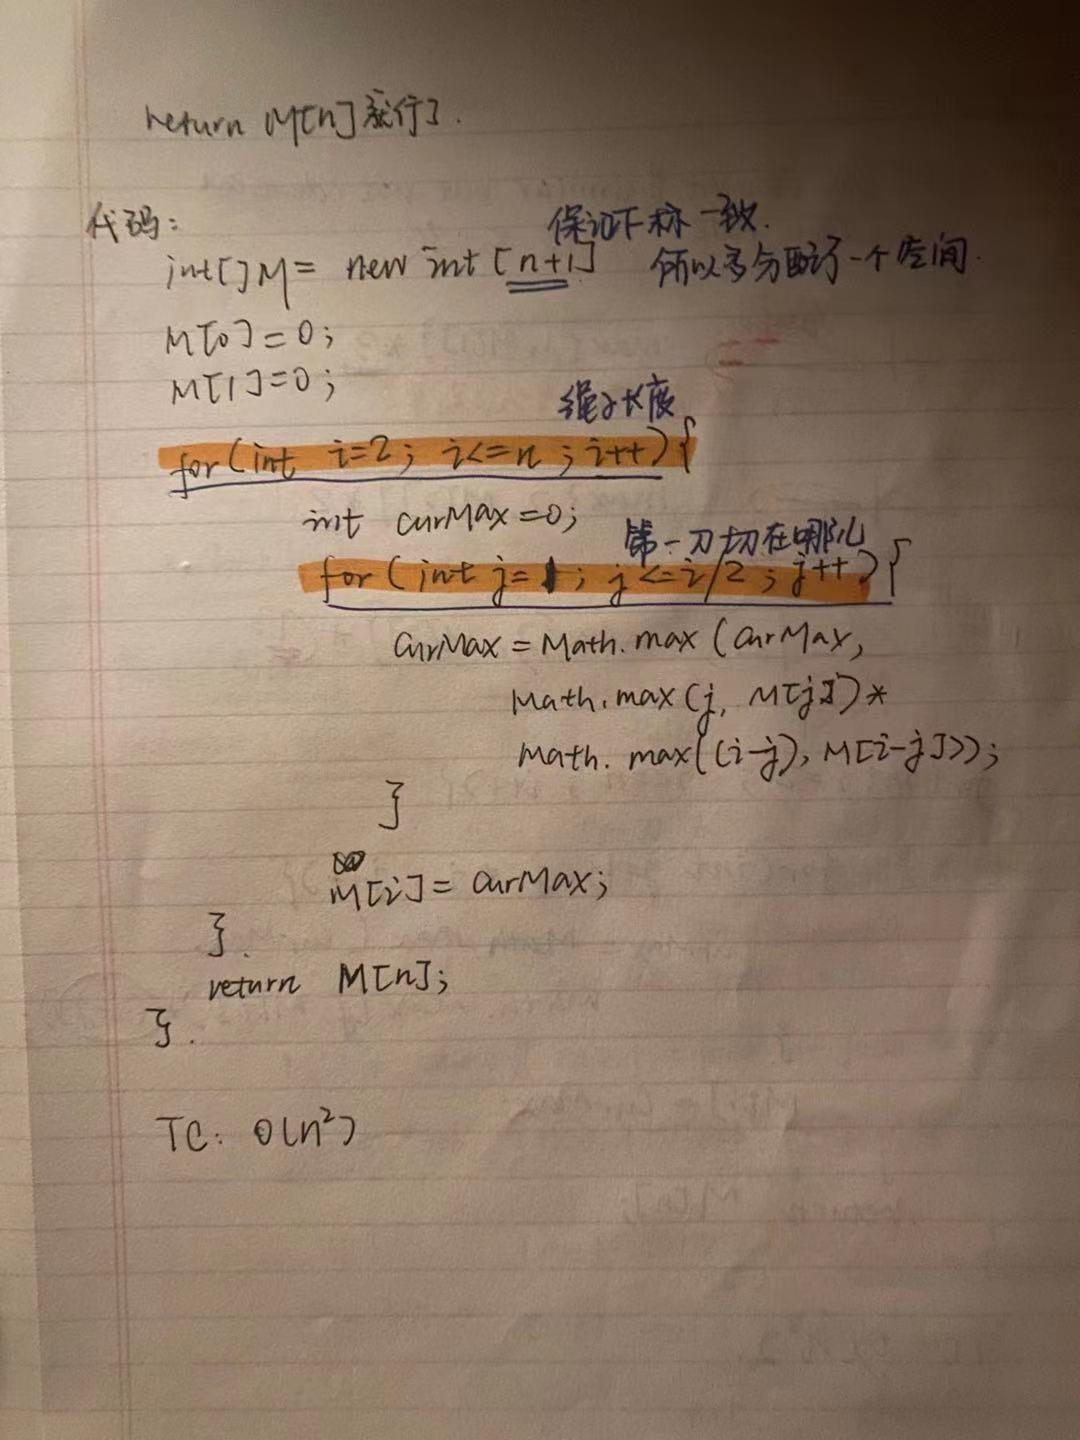 return M[n]就行了.
保证下标一致.
代码:
int[] M = new int [n+1] 所以多分配了一个空间.
M[0]=0;
M[1]=0;
绳子长度
for(int i=2; i<=n; i++){
int curMax=0;
第一刀切在哪儿
for(int j=1; j<=i/2; j++){
curMax = Math.max(curMax,
Math.max(j, M[j])*
Math.max((i-j), M[i-j]));
}
M[i]= curMax;
}.
return M[n];
}.
TC: O(n²)